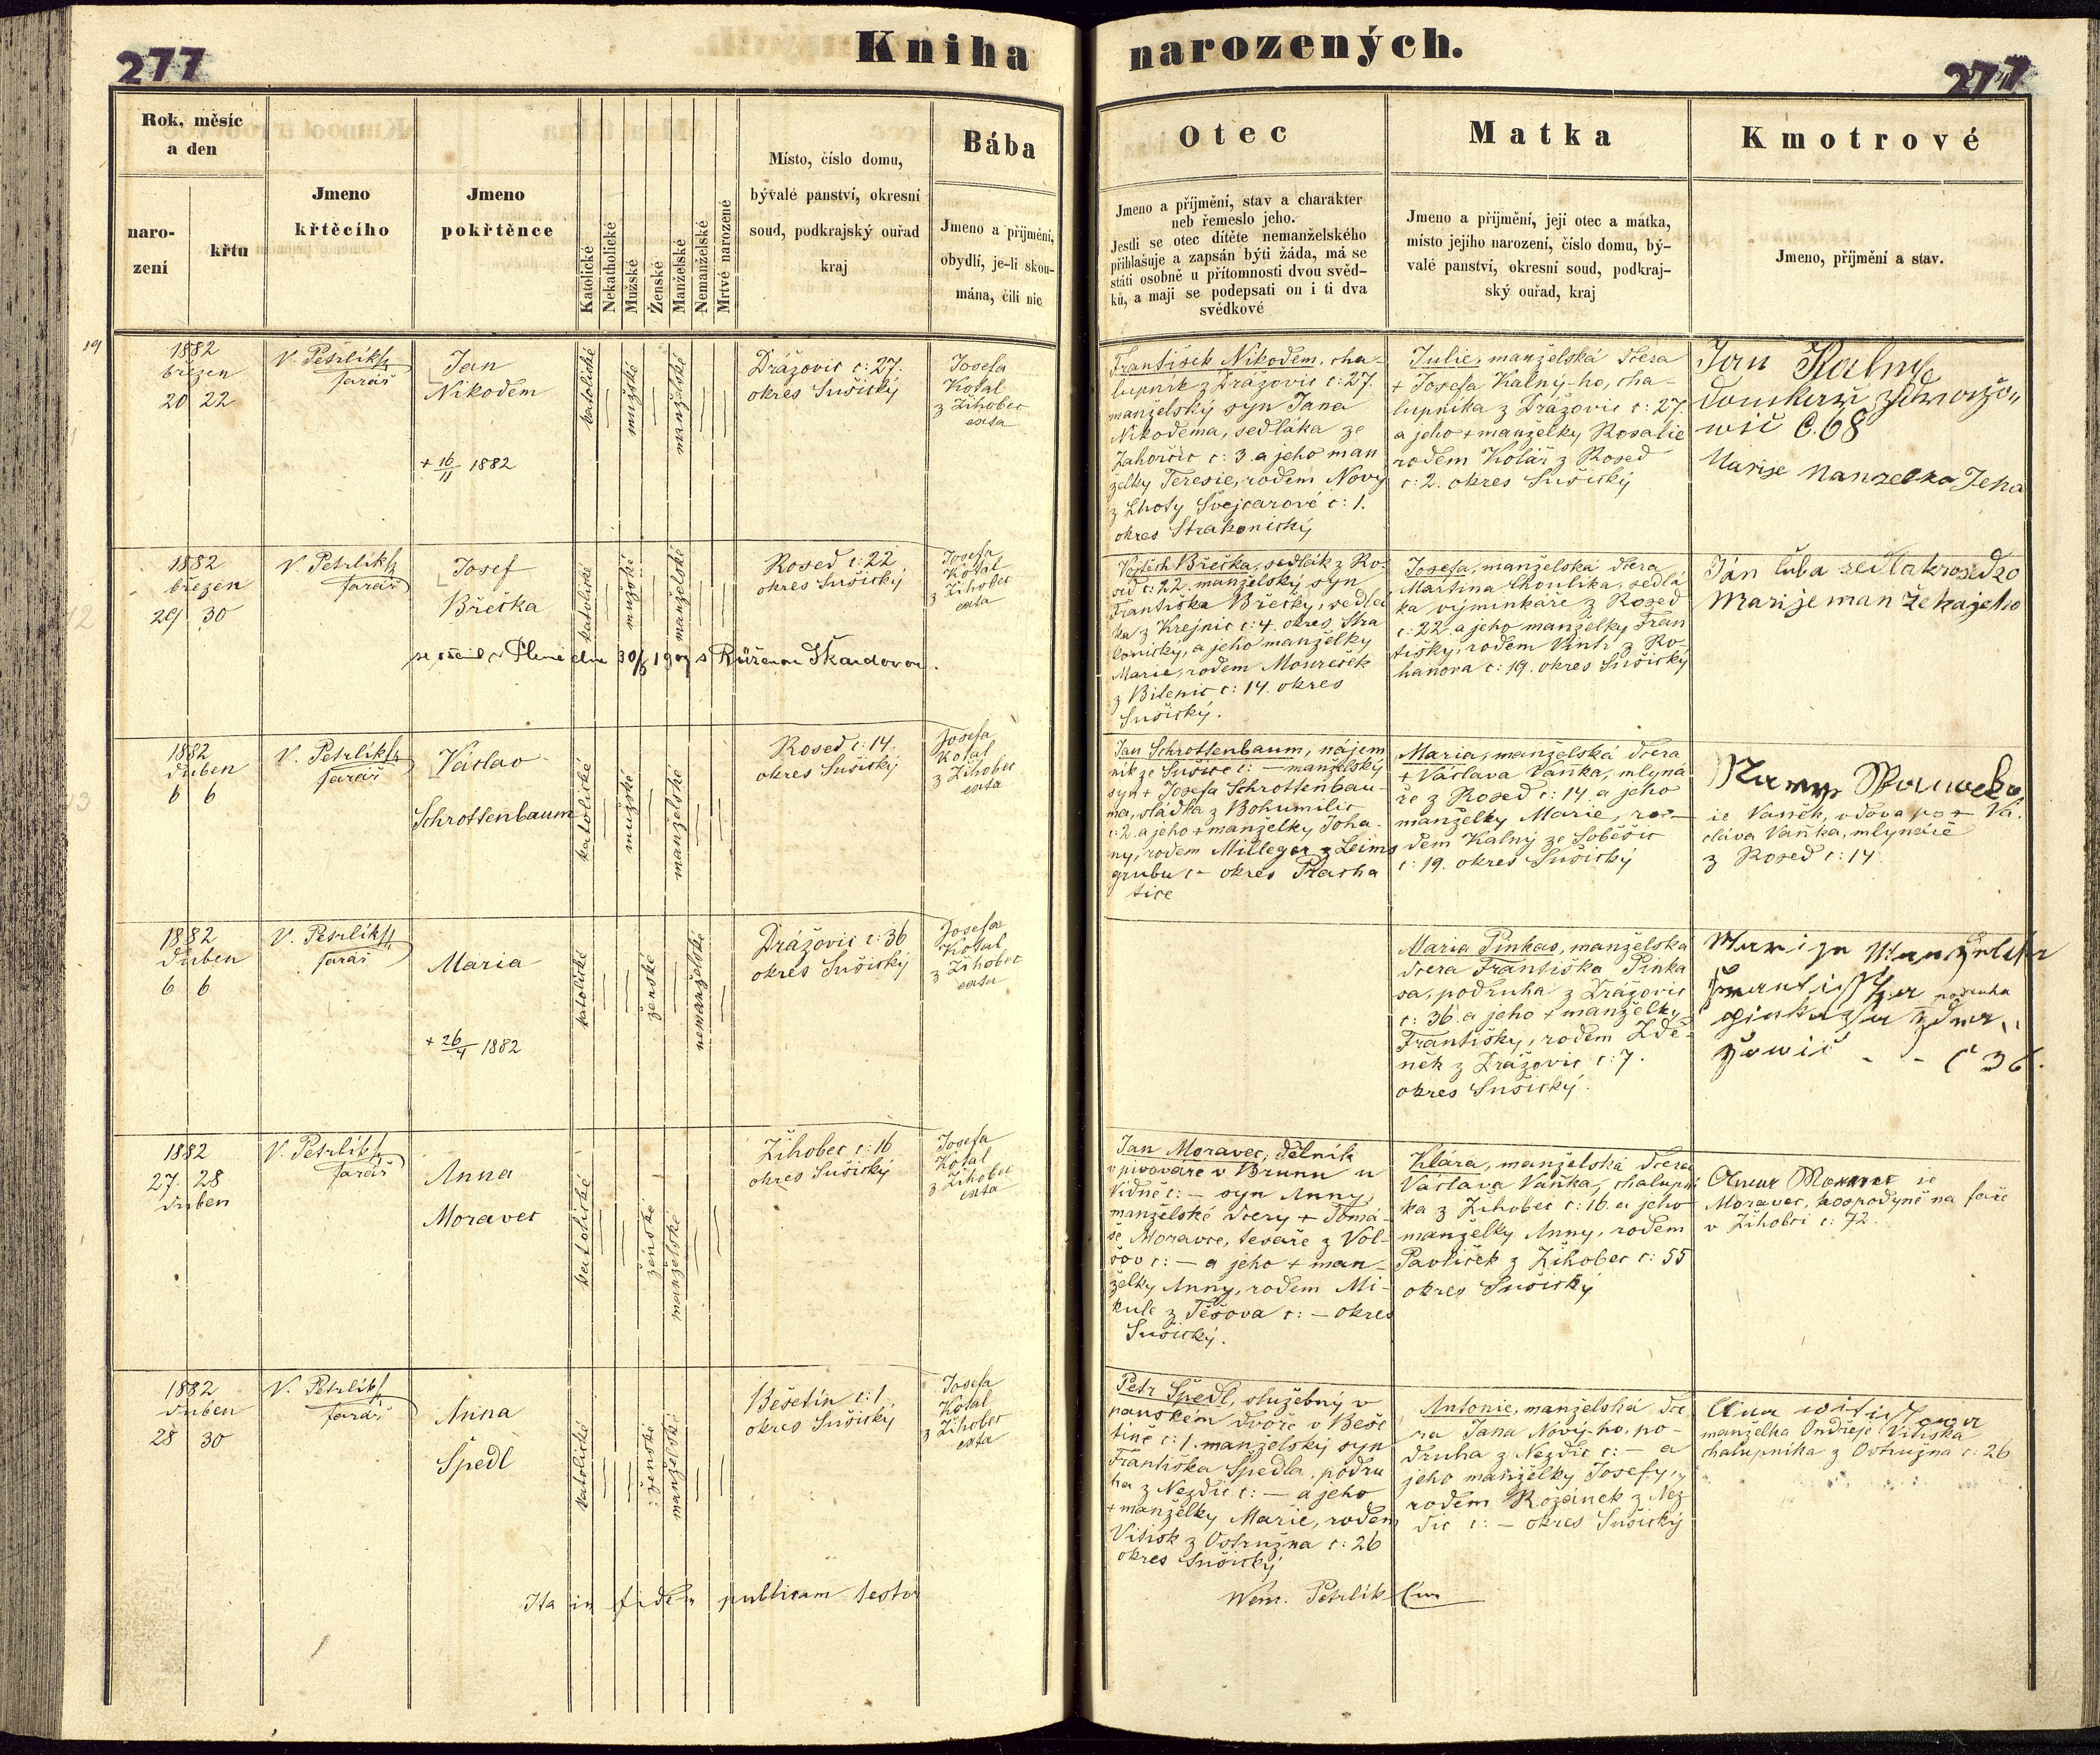 277
Kniha narozených.
277
Rok, měsíc
a den
naro-
zení
křtu
Jmeno
křtěcího
Jmeno
pokřtěnce
Katolické
Nekatholické
Mužské
Ženské
Manželské
Nemanželské
Mrtvé narozené
Místo, číslo domu,
bývalé panství, okresní
soud, podkrajský ouřad
kraj
Bába
Jmeno a příjmění,
obydlí, je-li skou-
mána, čili nic
Otec
Jmeno a příjmění, stav a charakter
neb řemeslo jeho.
Jestli se otec dítěte nemanželského
přihlašuje a zapsán býti žáda, má se
státi osobně u přítomnosti dvou svěd-
ků, a mají se podepsati on i ti dva
svědkové
Matka
Jmeno a příjmění, její otec a mátka,
místo jejího narození, číslo domu, bý-
valé panství, okresní soud, podkraj-
ský ouřad, kraj
Kmotrové
Jmeno, příjmění a stav.
1882
březen
20 22
V. Petrlík
farář
Jan
Nikodem
+ 16/11 1882
katolické
mužské
manželské
Drážovic č: 27.
okres Sušický
Josefa
Kotal
z Žihobec
exta
František Nikodem, cha-
lupník z Drážovic č: 27.
manželský syn Jana
Nikodema, sedláka ze
Zahorčic č: 3. a jeho man
želky Teresie, rodem Nový
z Lhoty Švejcarové č: 1.
okres Strakonický
Julie, manželská dcera
+ Josefa Kalný-ho, cha-
lupníka z Drážovic č: 27.
a jeho + manželky Rosalie
rodem Kolář z Rosed
č: 2. okres Sušický
Jan Kalny
C. 68
Marije
1882
březen
29 30
V. Petrlík
farář
Josef
Břečka
katolické
mužské
manželské
Rosed č: 22
okres Sušický
Josefa
Kotal
z Žihobec
exta
dne 30/6 1907 s Růženou Škardovou.
Vojtěch Břečka, sedlák z Ro-
sed č: 22. manželský syn
Františka Břečky, sedlá
ka z Krejnic č: 4. okres Stra
konický, a jeho manželky
Marie, rodem Moureček
z Bilenic č: 14. okres
Sušický.
Josefa, manželská dcera
Martina Choulíka, sedlá
ka výminkáře z Rosed
č: 22. a jeho manželky Fran
tišky, rodem Vintr z Ro-
hanova č: 19. okres Sušický
Ján luba sedlakrosed 20
Marije manželka jeho
1882
duben
6 6
V. Petrlík
farář
Václav
Schrottenbaum
katolické
mužské
manželské
Rosed č: 14.
okres Sušický
Josefa
Kotal
z Žihobec
exta
Jan Schrottenbaum, nájem
ník ze Sušice č: — manželský
syn + Josefa Schrottenbau-
ma, sládka z Bohumilic
č: 2. a jeho + manželky Joha-
ny, rodem Milleger z Leims
grubu č: — okres Pracha
tice
Maria, manželská dcera
+ Václava Vaňka, mlyná
ře z Rosed č: 14 a jeho
manželky Marie, ro-
dem Kalný ze Soběšic
č: 19. okres Sušický
ie Vaněk, vdova po + Vá-
cláva Vaňka, mlynáře
z Rosed č: 14
1882
duben
6 6
V. Petrlík
farář
Maria
+ 26/4 1882
katolické
ženské
nemanželské
Drážovic č: 36
okres Sušický
Josefa
Kotal
z Žihobec
exta
Maria Pinkas, manželská
dcera Františka Pinka
sa, podruha z Drážovic
č: 36. a jeho + manželky
Františky, rodem Zde-
něk z Drážovic č: 7.
okres Sušický.
podruha
č 36.
1882
27 28
duben
V. Petrlík
farář
Anna
Moravec
katolické
ženské
manželské
Žihobec č: 16
okres Sušický
Josefa
Kotal
z Žihobec
exta
Jan Moravec, dělník
v pivováře v Brunu u
Vídně č: — syn Anny,
manželské dcery + Tomá-
še Moravce, tesaře z Vol-
šov č: — a jeho + man-
želky Anny, rodem Mi-
kule z Těšova č: — okres
Sušický.
Klára, manželská dcera
Václava Vaňka, chalupní
ka z Žihobec č: 16. a jeho
manželky Anny, rodem
Pavlíček z Žihobec č: 55
okres Sušický
ie
Moravec, hospodyně na faře
v Žihobci č: 72.
1882
duben
28 30
V. Petrlík
farář
Anna
Špedl
katolické
ženské
manželské
Bešetín č: 1.
okres Sušický
Josefa
Kotal
z Žihobec
exta
Petr Špedl, služebný v
panském dvoře v Beše
tíně č: 1. manželský syn
Františka Špedla, podru
ha z Nezdic č: — a jeho
+ manželky Marie, rodem
Vitišk z Ostružna č: 26
okres Sušický
Antonie, manželská dce
ra Jana Nový-ho, po-
druha z Nezdic č: — a
jeho manželky Josefy,
rodem Rožánek z Nez
dic č: — okres Sušický
manželka Ondřeje Vitiska
chalupníka z Ostružna č: 26
Ita in fidem publicam testor
Wenc. Petrlík